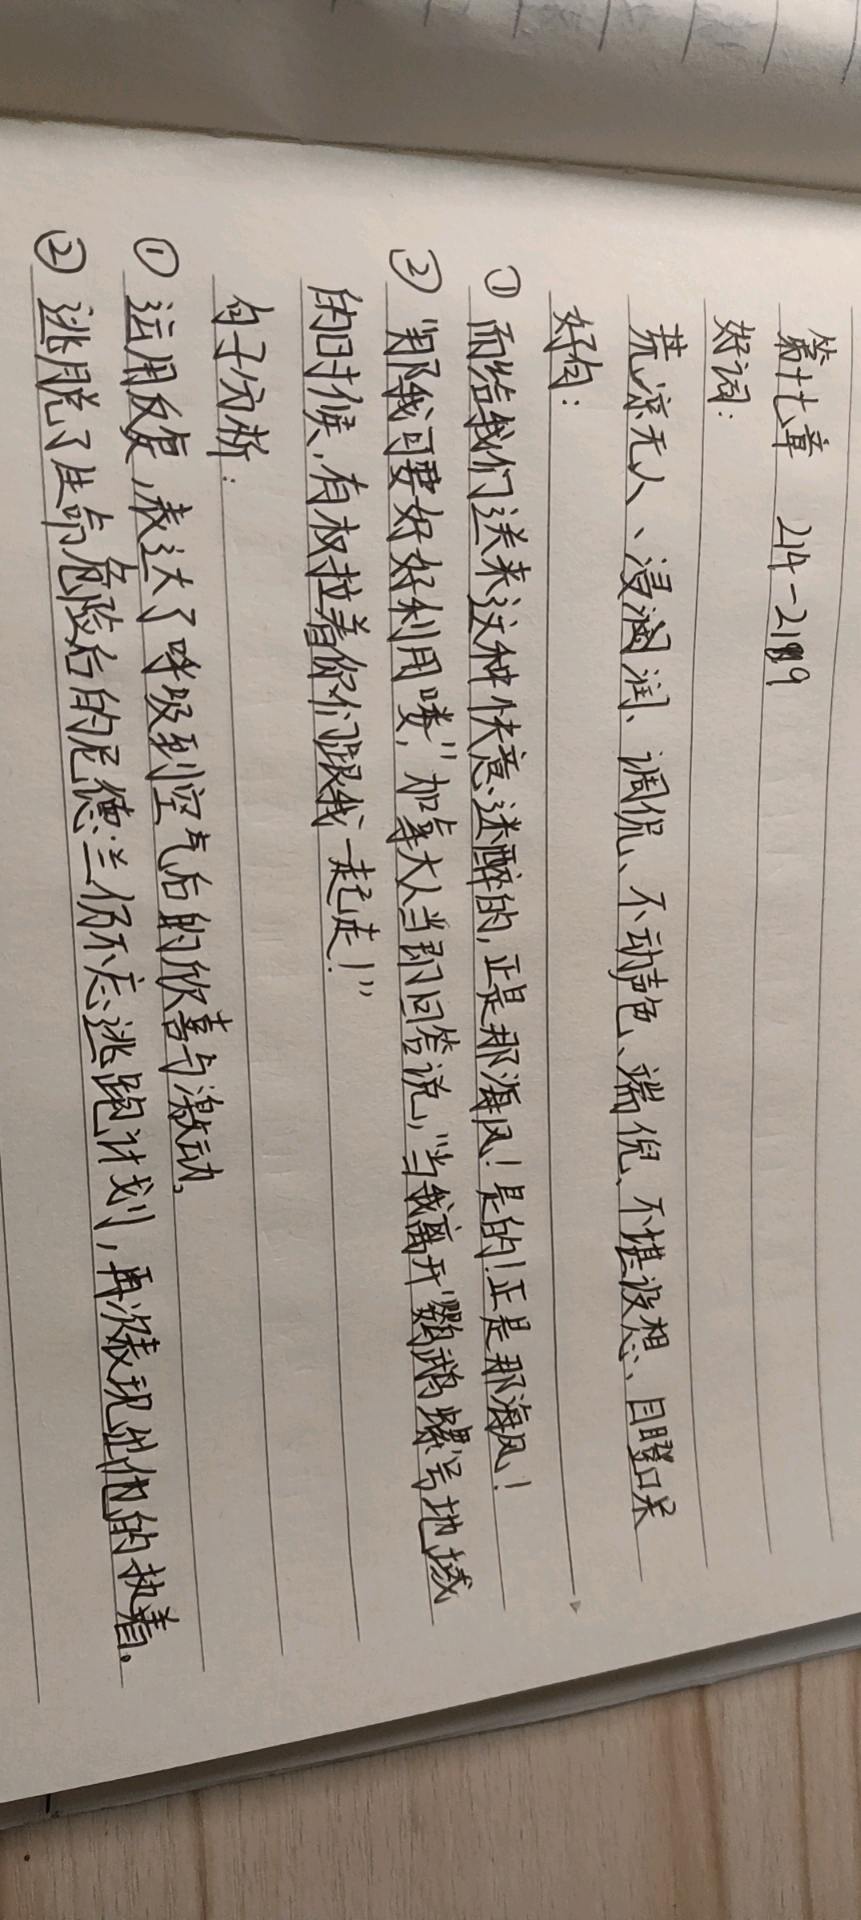 第十七章 214-219
好词：
荒凉无人、浸润、调侃、不动声色、端倪、不堪设想、目瞪口呆
好句：
① 而给我们送来这种快意、迷醉的，正是那海风！是的！正是那海风！
② “那我可要好好利用喽，”加拿大人当即回答说，“当我离开‘鹦鹉螺号’地域
的时候，有权拉着你们跟我一起走！”
句子分析：
① 运用反复，表达了呼吸到空气后的欣喜与激动。
② 逃脱了生命危险后的尼德兰仍不忘逃跑计划，再次表现出他的执着。